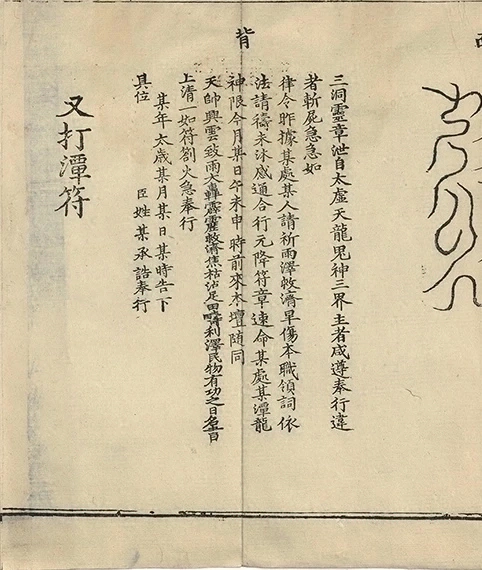 背
三洞靈章泄自太虛天龍鬼神三界主者咸遵奉行違
者斬屍急急如
律令昨據某處某人請祈雨澤救濟旱傷本職領詞依
法請禱未沐感通合行元降符章速命某處某潭龍
神限今月某日午未申時前來本壇随同
天帥興雲致雨大轟霹靂救濟焦枯沾足田疇利澤民物有功之日名言
上清一如符劄火急奉行
某年太歲某月某日某時告下
具位 臣姓某承誥奉行
又打潭符